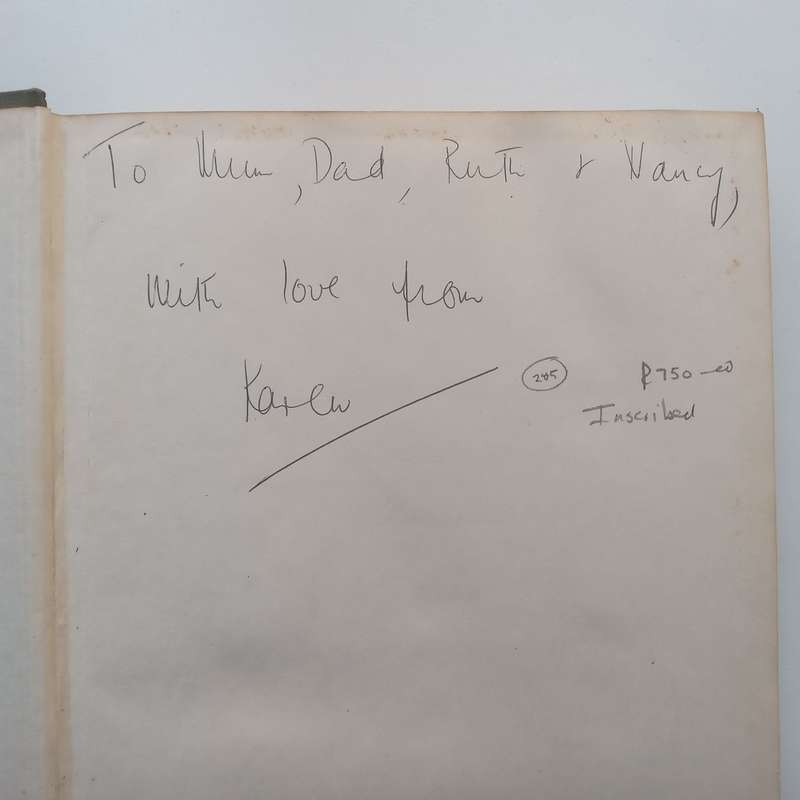 To Mum, Dad, Ruth & Nancy,
with love from
Karen
285 R750-00
Inscribed